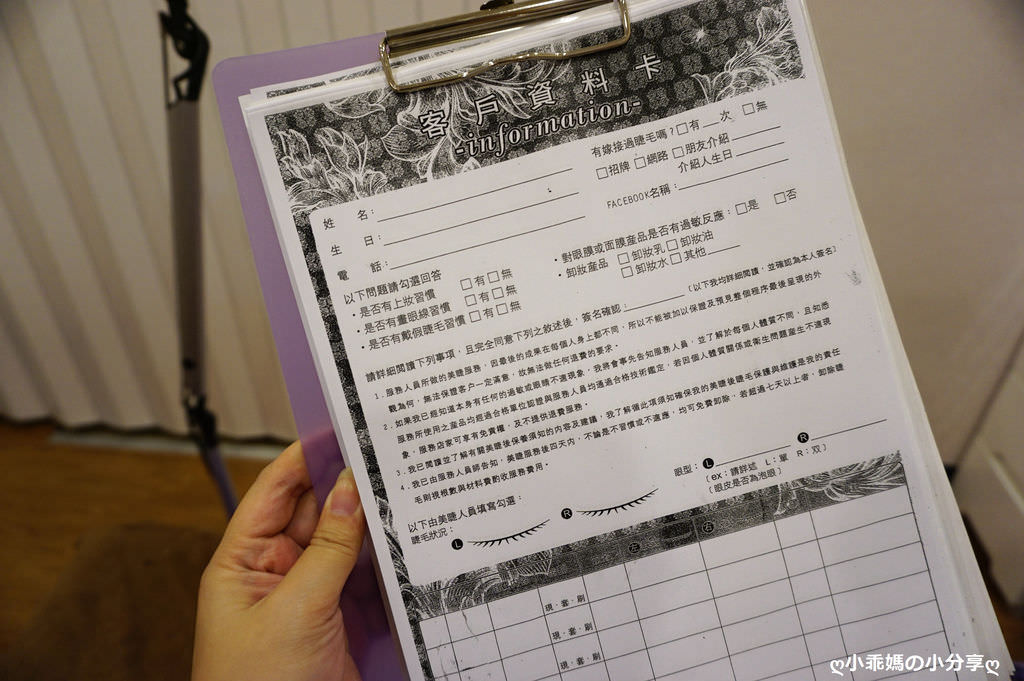 客戶資料卡
-information-
姓 名：
有嫁接過睫毛嗎？□有 次 □無
□招牌 □網路 □朋友介紹
介紹人生日
生 日：
FACEBOOK名稱：
電 話：
以下問題請勾選回答
・是否有上妝習慣 □有□無
・是否有畫眼線習慣 □有□無
・是否有戴假睫毛習慣 □有□無
・對眼膜或面膜產品是否有過敏反應：□是 □否
・卸妝產品 □卸妝乳 □卸妝油
□卸妝水 □其他
請詳細閱讀下列事項，且完全同意下列之敘述後，簽名確認： (以下我均詳細閱讀，並確認為本人簽名)
1．服務人員所做的美睫服務，因最後的成果在每個人身上都不同，所以不能被加以保證及預見整個程序最後呈現的外
觀為何，無法保證客戶一定滿意，故無法做任何退費的要求。
2．如果我已經知道本身有任何的過敏或眼睛不適現象，我將會事先告知服務人員，並了解於每個人體質不同，且知悉
服務所使用之產品均經過合格單位認證與服務人員均通過合格技術鑑定，若因個人體質關係或衛生問題產生不適現
象，服務店家可享有免責權，及不提供退費服務。
3．我已閱讀並了解有關美睫後保養須知的內容及建議，我了解循此項須知確保我的美睫後睫毛保護與維護是我的責任
4．我已由服務人員將告知，美睫服務後四天內，不論是不習慣或不適應，均可免費卸除，若超過七天以上者，卸除睫
毛則視根數與材料費酌收服務費用。
以下由美睫人員填寫勾選：
睫毛狀況： L R
眼型： L R
(ex：請詳述 L：單 R：双)
(眼皮是否為泡眼)
左 右
現．套．刷
現．套．刷
現．套．刷
ღ小乖媽の小分享ღ